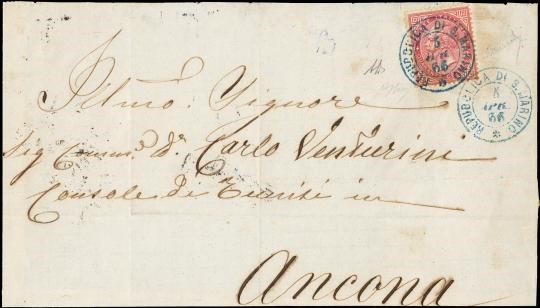 REPUBBLICA DI S. MARINO
5
APR.
66
REPUBBLICA DI S. MARINO
5
APR.
66
Illmo Signore
Sig Comm. Dr Carlo Venturini
Console di Tunisi in
Ancona